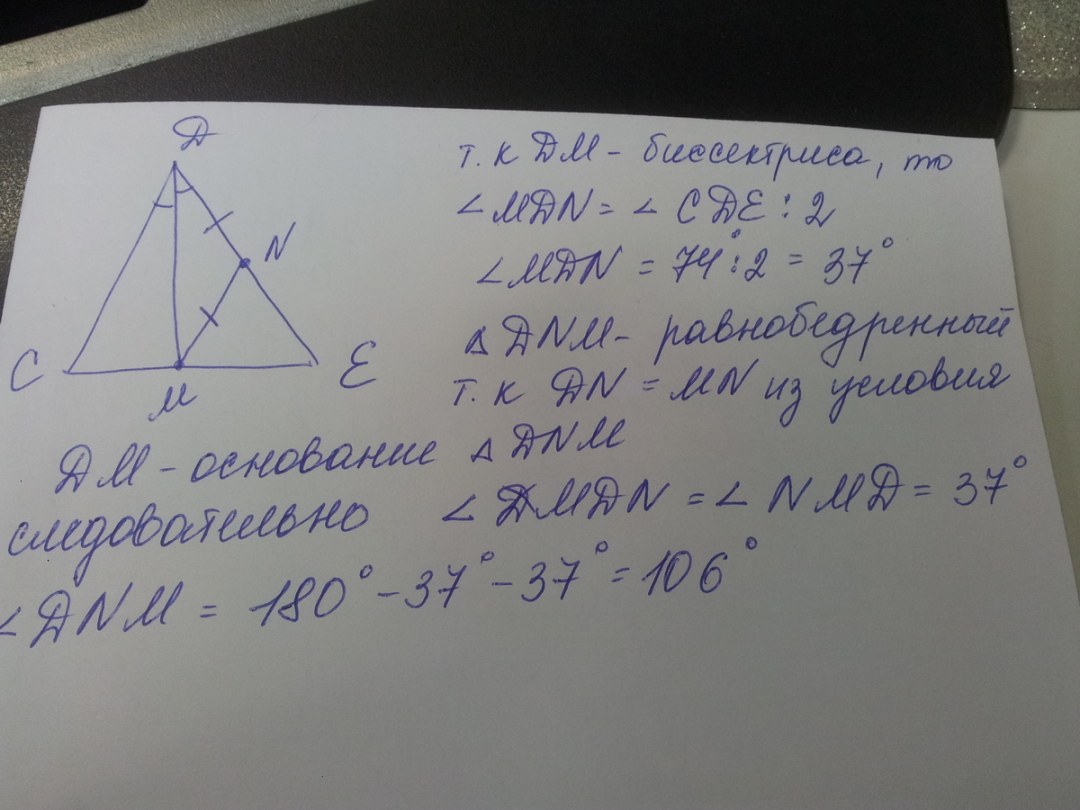 D
N
C
E
M
т. к DM - биссектриса, то
∠MDN = ∠ CDE : 2
∠MDN = 74° : 2 = 37°
△ DNM - равнобедренный
т. к DN = MN из условия
DM - основание △ DNM
следовательно ∠ MDN = ∠ NMD = 37°
∠ DNM = 180° - 37° - 37° = 106°